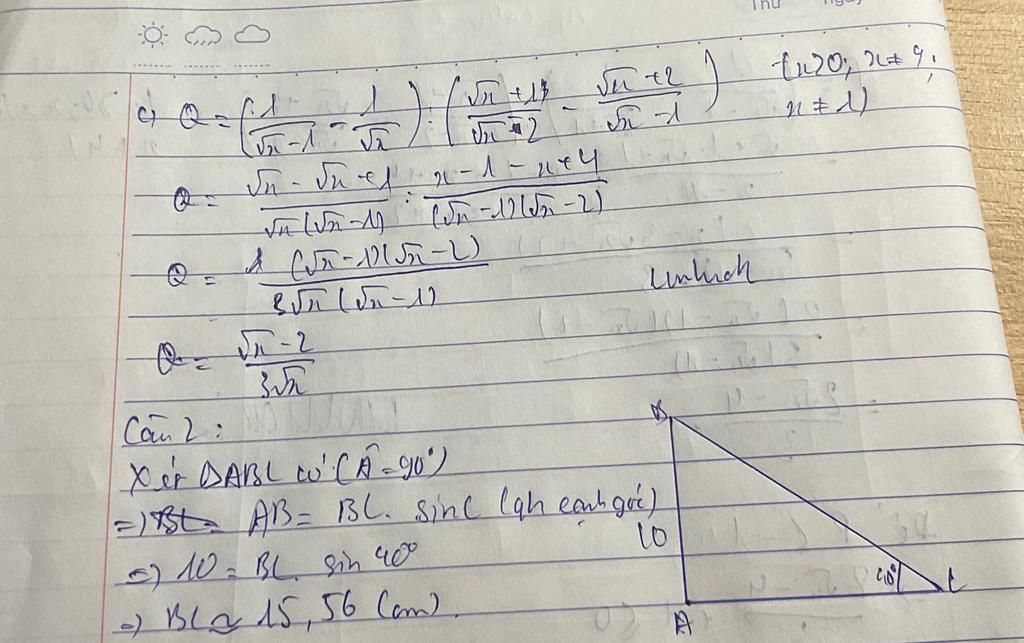 Thứ Ngày
c) Q = (1/(√x - 1) - 1/√x) : ((√x + 1)/(√x - 2) - (√x + 2)/(√x - 1)) (x>0; x ≠ 4;
x ≠ 1)
Q = (√x - √x + 1)/(√x(√x - 1)) : (x - 1 - x + 4)/((√x - 1)(√x - 2))
Q = 1(√x - 1)(√x - 2)/(3√x(√x - 1))
Q = (√x - 2)/(3√x)
Câu 2:
Xét ΔABC có (Â = 90°)
=) BC = AB = BC. sinC (qh cạnh góc)
=) 10 = BC. sin 40°
=) BC ≃ 15,56 (cm).
B
10
40°
A
C